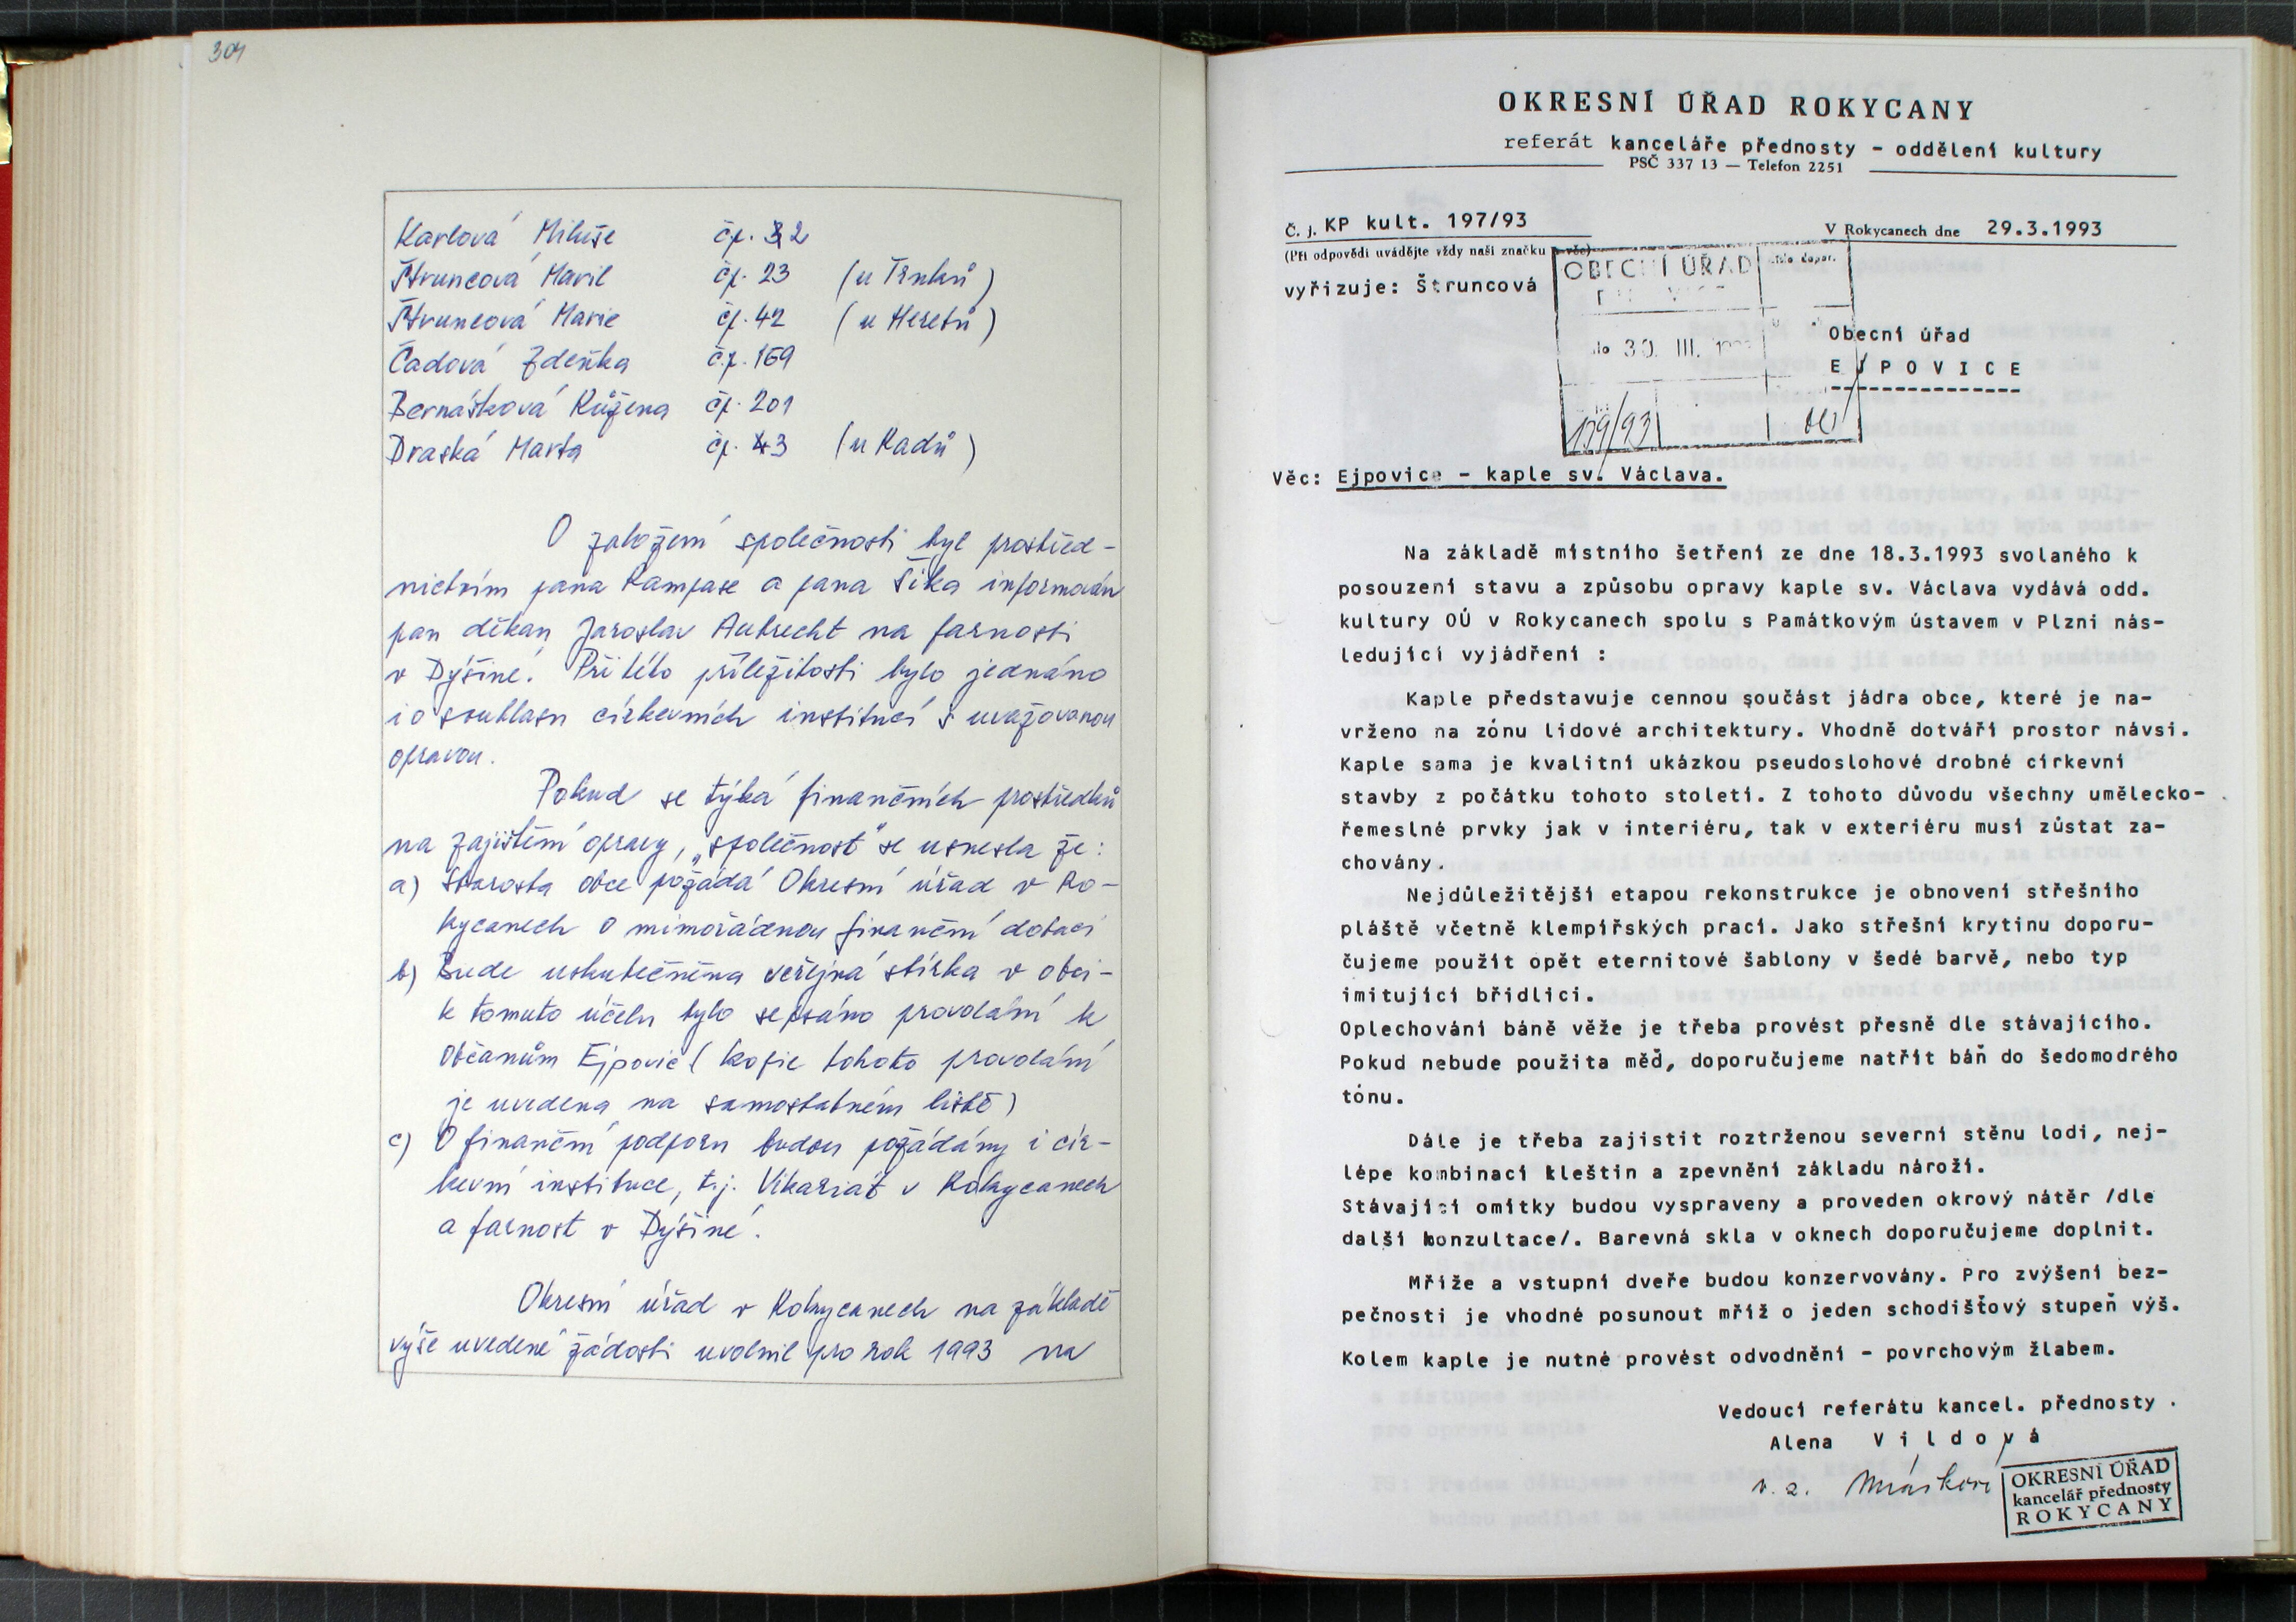 304
Karlová Miluše čp. 32
Štruncová Marie čp. 23 (u Trnků)
Štruncová Marie čp. 42 (u Heretů)
Čadová Zdeňka č.p. 169
Bernášková Růžena čp. 201
Draská Marta čp. 43 (u Radů)
O založení společnosti byl prostřed-
nictvím pana Rampase a pana Šíka informován
pan děkan Jaroslav Aubrecht na farnosti
v Dýšině. Při této příležitosti bylo jednáno
i o souhlasu církevních institucí s uvažovanou
opravou.
Pokud se týká finančních prostředků
na zajištění opravy, „společnost" se usnesla že:
a) Starosta obce požádá Okresní úřad v Ro-
kycanech o mimořádnou finanční dotaci
b) Bude uskutečněna veřejná sbírka v obci-
k tomuto účelu bylo sepsáno provolání k
občanům Ejpovic (kopie tohoto provolání
je uvedena na samostatném listě)
c) O finanční podporu budou požádány i cír-
kevní instituce, t.j. Vikariát v Rokycanech
a farnost v Dýšině.
Okresní úřad v Rokycanech na základě
výše uvedené žádosti uvolnil pro rok 1993 na
OKRESNÍ ÚŘAD ROKYCANY
referát kanceláře přednosty - oddělení kultury
PSČ 337 13 — Telefon 2251
Č. j. KP kult. 197/93
V Rokycanech dne 29.3.1993
(Při odpovědi uvádějte vždy naši značku a věc)
vyřizuje: Štruncová
OBECNÍ ÚŘAD
30. III.
179/93
Obecní úřad
E J P O V I C E
Věc: Ejpovice - kaple sv. Václava.
Na základě místního šetření ze dne 18.3.1993 svolaného k
posouzení stavu a způsobu opravy kaple sv. Václava vydává odd.
kultury OÚ v Rokycanech spolu s Památkovým ústavem v Plzni nás-
ledující vyjádření :
Kaple představuje cennou součást jádra obce, které je na-
vrženo na zónu lidové architektury. Vhodně dotváří prostor návsi.
Kaple sama je kvalitní ukázkou pseudoslohové drobné církevní
stavby z počátku tohoto století. Z tohoto důvodu všechny umělecko-
řemeslné prvky jak v interiéru, tak v exteriéru musí zůstat za-
chovány.
Nejdůležitější etapou rekonstrukce je obnovení střešního
pláště včetně klempířských prací. Jako střešní krytinu doporu-
čujeme použít opět eternitové šablony v šedé barvě, nebo typ
imitující břidlici.
Oplechování báně věže je třeba provést přesně dle stávajícího.
Pokud nebude použita měď, doporučujeme natřít báň do šedomodrého
tónu.
Dále je třeba zajistit roztrženou severní stěnu lodi, nej-
lépe kombinací kleštin a zpevnění základu nároží.
Stávající omítky budou vyspraveny a proveden okrový nátěr /dle
další konzultace/. Barevná skla v oknech doporučujeme doplnit.
Mříže a vstupní dveře budou konzervovány. Pro zvýšení bez-
pečnosti je vhodné posunout mříž o jeden schodišťový stupeň výš.
Kolem kaple je nutné provést odvodnění - povrchovým žlabem.
Vedoucí referátu kancel. přednosty .
Alena V i l d o v á
v. z.
OKRESNÍ ÚŘAD
kancelář přednosty
ROKYCANY